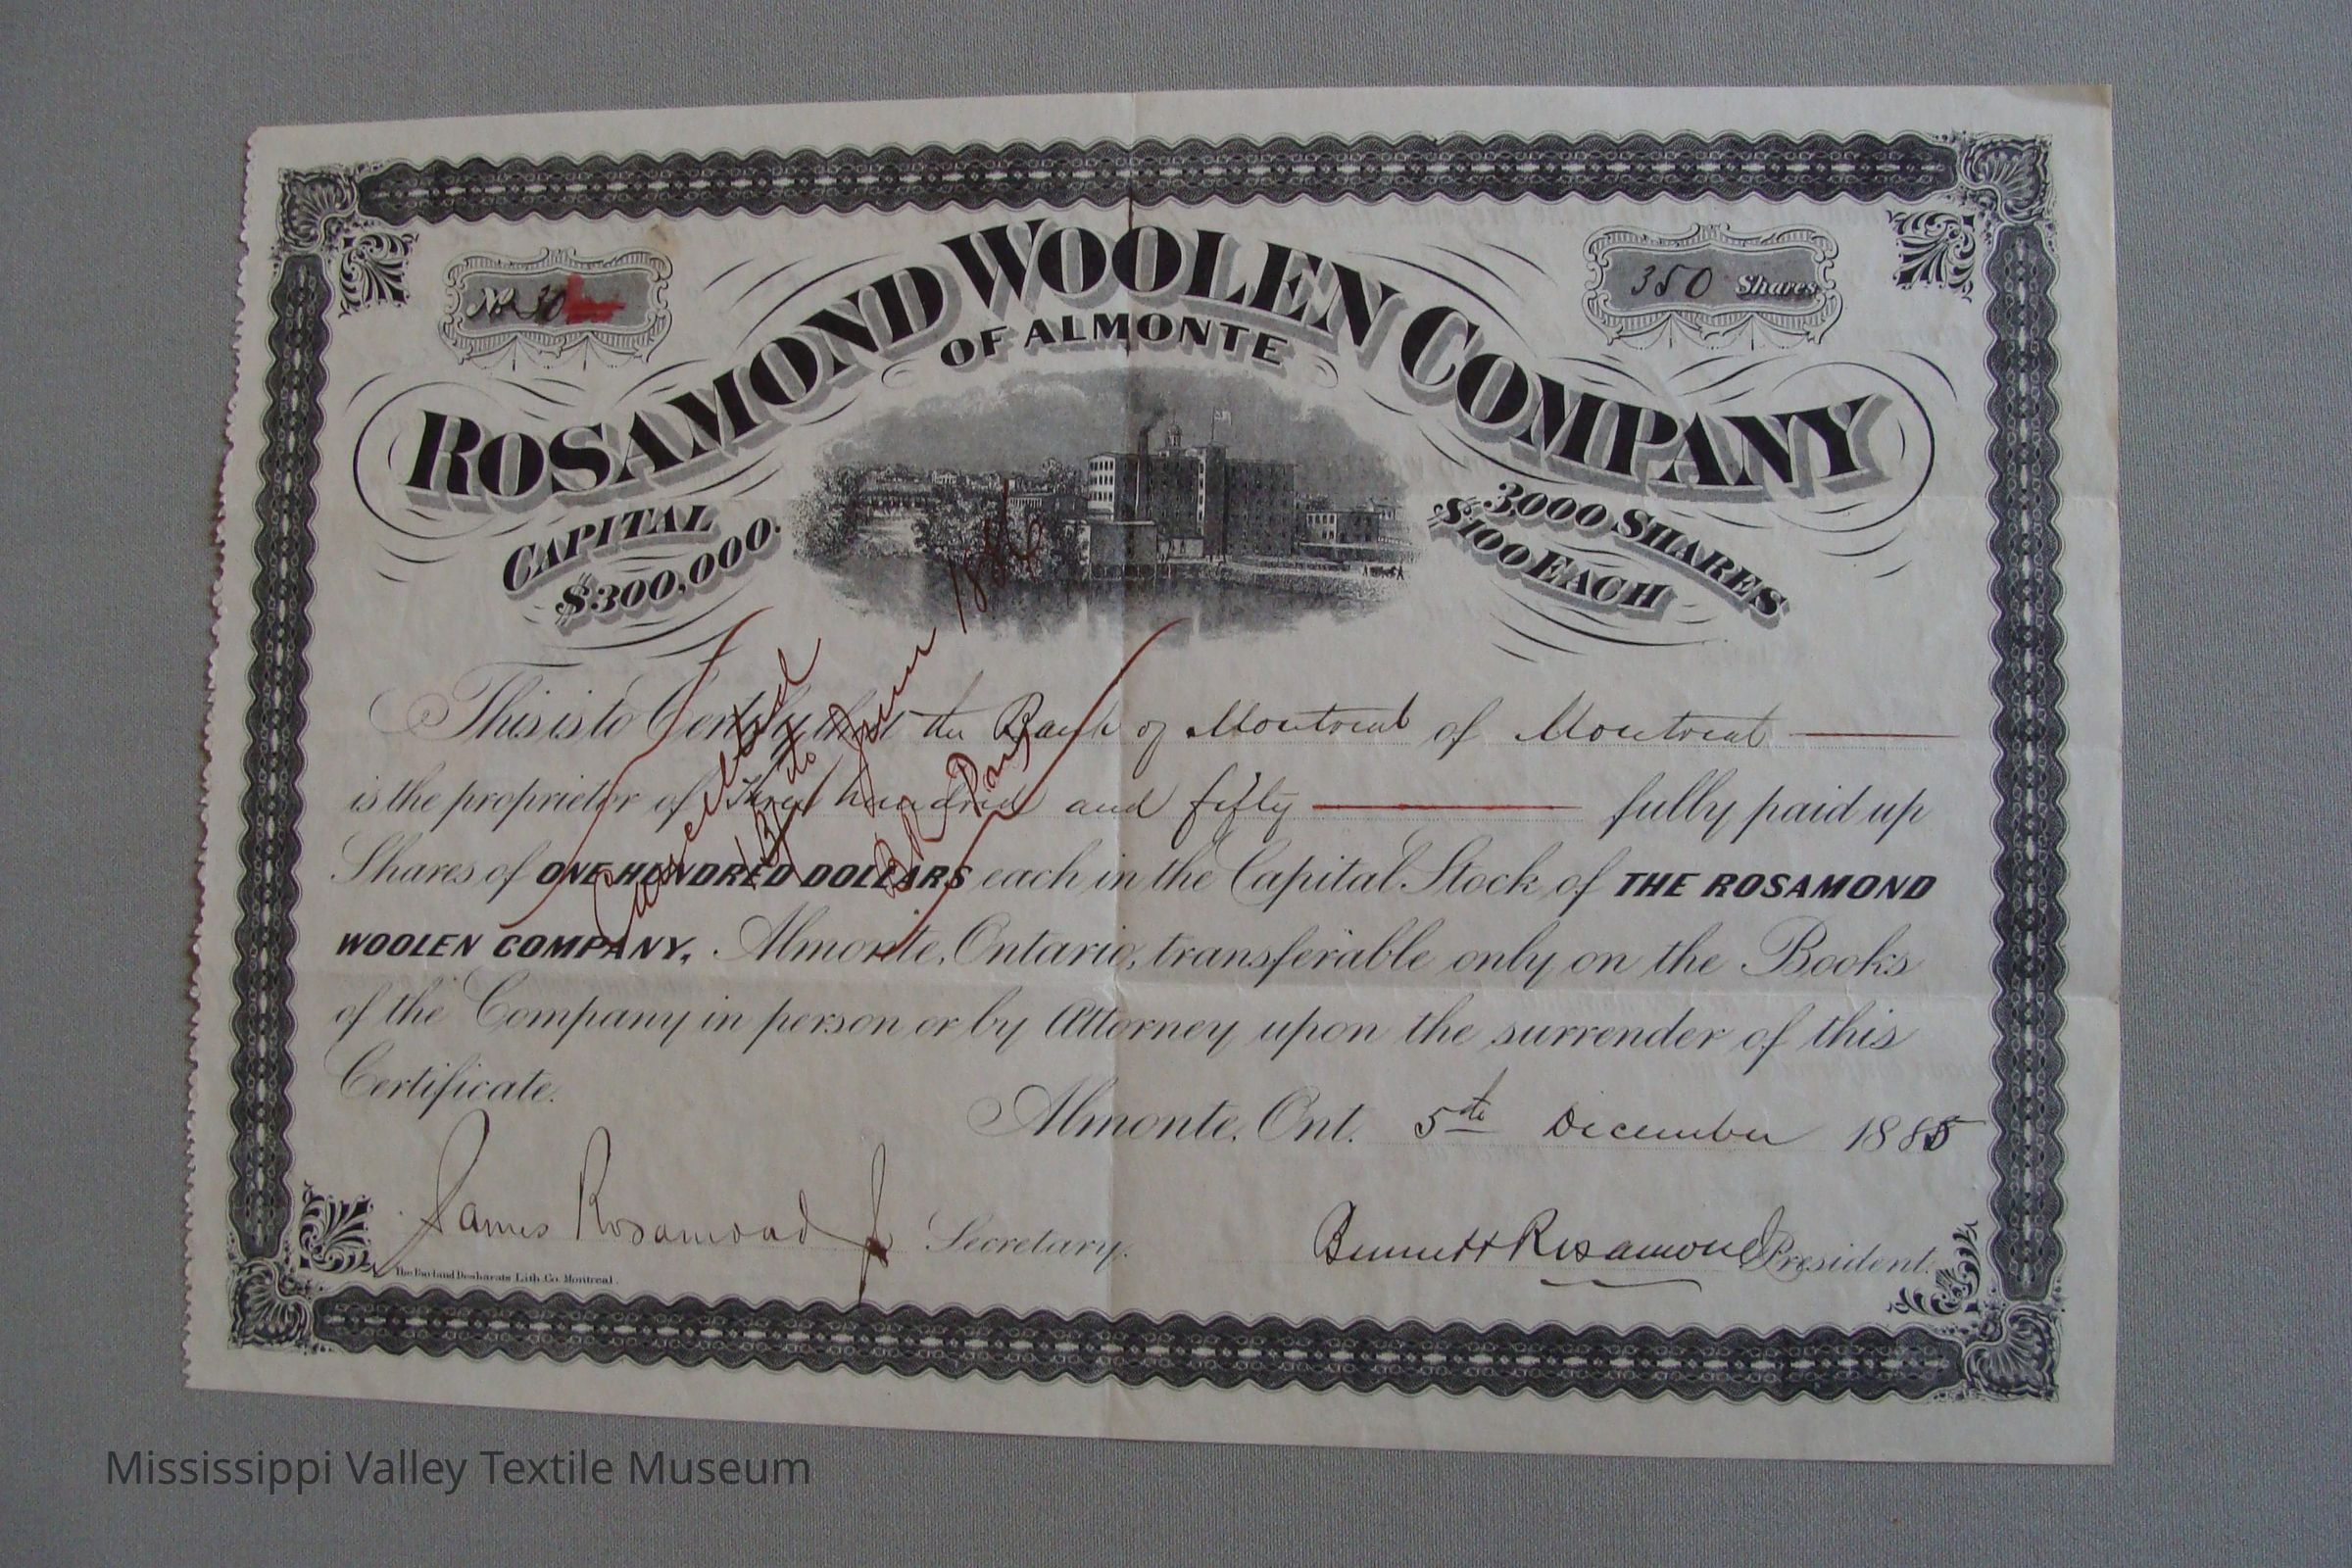 No 30
350 Shares
ROSAMOND WOOLEN COMPANY
OF ALMONTE
CAPITAL
$300,000.
3000 SHARES
$100 EACH
This is to Certify that the Bank of Montreal of Montreal
is the proprietor of Three hundred and fifty fully paid up
Shares of ONE HUNDRED DOLLARS each in the Capital Stock of THE ROSAMOND
WOOLEN COMPANY, Almonte, Ontario, transferable only on the Books
of the Company in person or by Attorney upon the surrender of this
Certificate.
Cancelled
13th June 1886
Almonte, Ont. 5th December 1885
James Rosamond Jr Secretary.
Bennett Rosamond President.
The Burland Desbarats Lith. Co. Montreal.
Mississippi Valley Textile Museum